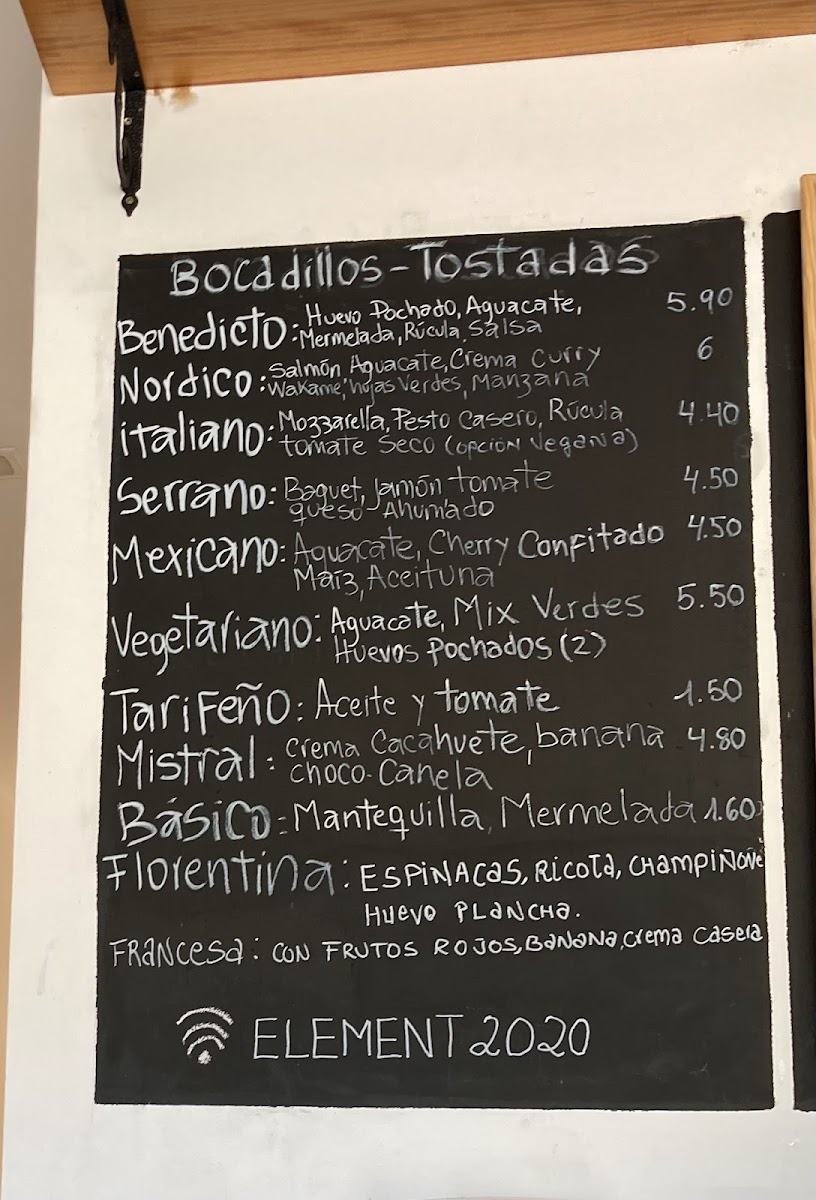 Bocadillos - Tostadas
Benedicto: Huevo Pochado, Aguacate, 5.90
Mermelada, Rúcula, Salsa
Nordico: Salmón Aguacate, Crema Curry 6
Wakame, hojas Verdes, Manzana
italiano: Mozzarella, Pesto Casero, Rúcula 4.40
tomate Seco (opción Vegana)
Serrano: Baguet, Jamón, tomate 4.50
queso Ahumado
Mexicano: Aguacate, Cherry Confitado 4.50
Maíz, Aceituna
Vegetariano: Aguacate, Mix Verdes 5.50
Huevos Pochados (2)
Tarifeño: Aceite y tomate 1.50
Mistral: Crema Cacahuete, banana 4.80
choco-Canela
Básico: Mantequilla, Mermelada 1.60
Florentina: ESPINACAS, RICOTA, CHAMPIÑONE
HUEVO PLANCHA.
FRANCESA: CON FRUTOS ROJOS, BANANA, Crema CASERA
ELEMENT 2020